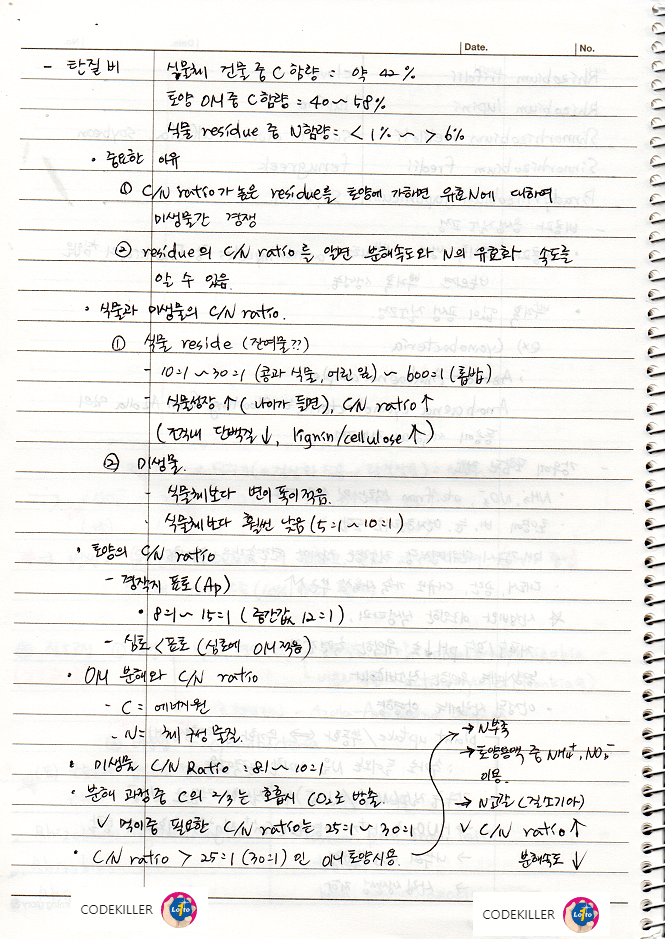 Date.
No.
- 탄질비 식물체 건물 중 C 함량 : 약 42%
토양 OM 중 C 함량 : 40~58%
식물 residue 중 N 함량 : <1% ~ >6%
• 중요한 이유
① C/N ratio가 높은 residue를 토양에 가하면 유효N에 대하여
미생물간 경쟁
② residue의 C/N ratio를 알면 분해속도와 N의 유효화 속도를
알 수 있음.
• 식물과 미생물의 C/N ratio.
① 식물 reside (잔여물??)
- 10:1 ~ 30:1 (콩과 식물, 어린 잎) ~ 600:1 (톱밥)
- 식물성장 ↑ (나이가 들면), C/N ratio ↑
(조직내 단백질 ↓, lignin/cellulose ↑)
② 미생물.
- 식물체보다 변이 폭이 적음.
- 식물체보다 훨씬 낮음 (5:1 ~ 10:1)
• 토양의 C/N ratio
- 경작지 표토 (Ap)
• 8:1 ~ 15:1 (중간값 12:1)
- 심토 < 표토 (심토에 OM 적음)
• OM 분해와 C/N ratio
- C = 에너지원
- N = 체구성 물질.
• 미생물 C/N Ratio = 8:1 ~ 10:1
• 분해 과정중 C의 2/3는 호흡시 CO₂로 방출.
∨ 먹이중 필요한 C/N ratio는 25:1 ~ 30:1
• C/N ratio > 25:1 (30:1) 인 OM 토양시용.
→ N부족
→ 토양용액 중 NH₄⁺, NO₃⁻
이용.
→ N고갈 (질소기아)
∨ C/N ratio ↑
분해속도 ↓
CODEKILLER Lotto
CODEKILLER Lotto